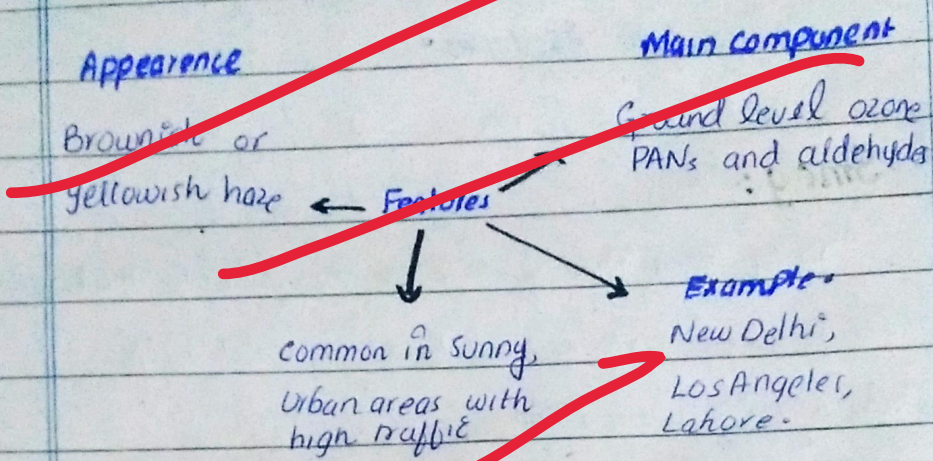 Appearence
Brownish or
yellowish haze
Main component
Ground level ozone
PANs and aldehydes
Features
Common in sunny,
Urban areas with
high traffic
Example.
New Delhi,
Los Angeles,
Lahore.